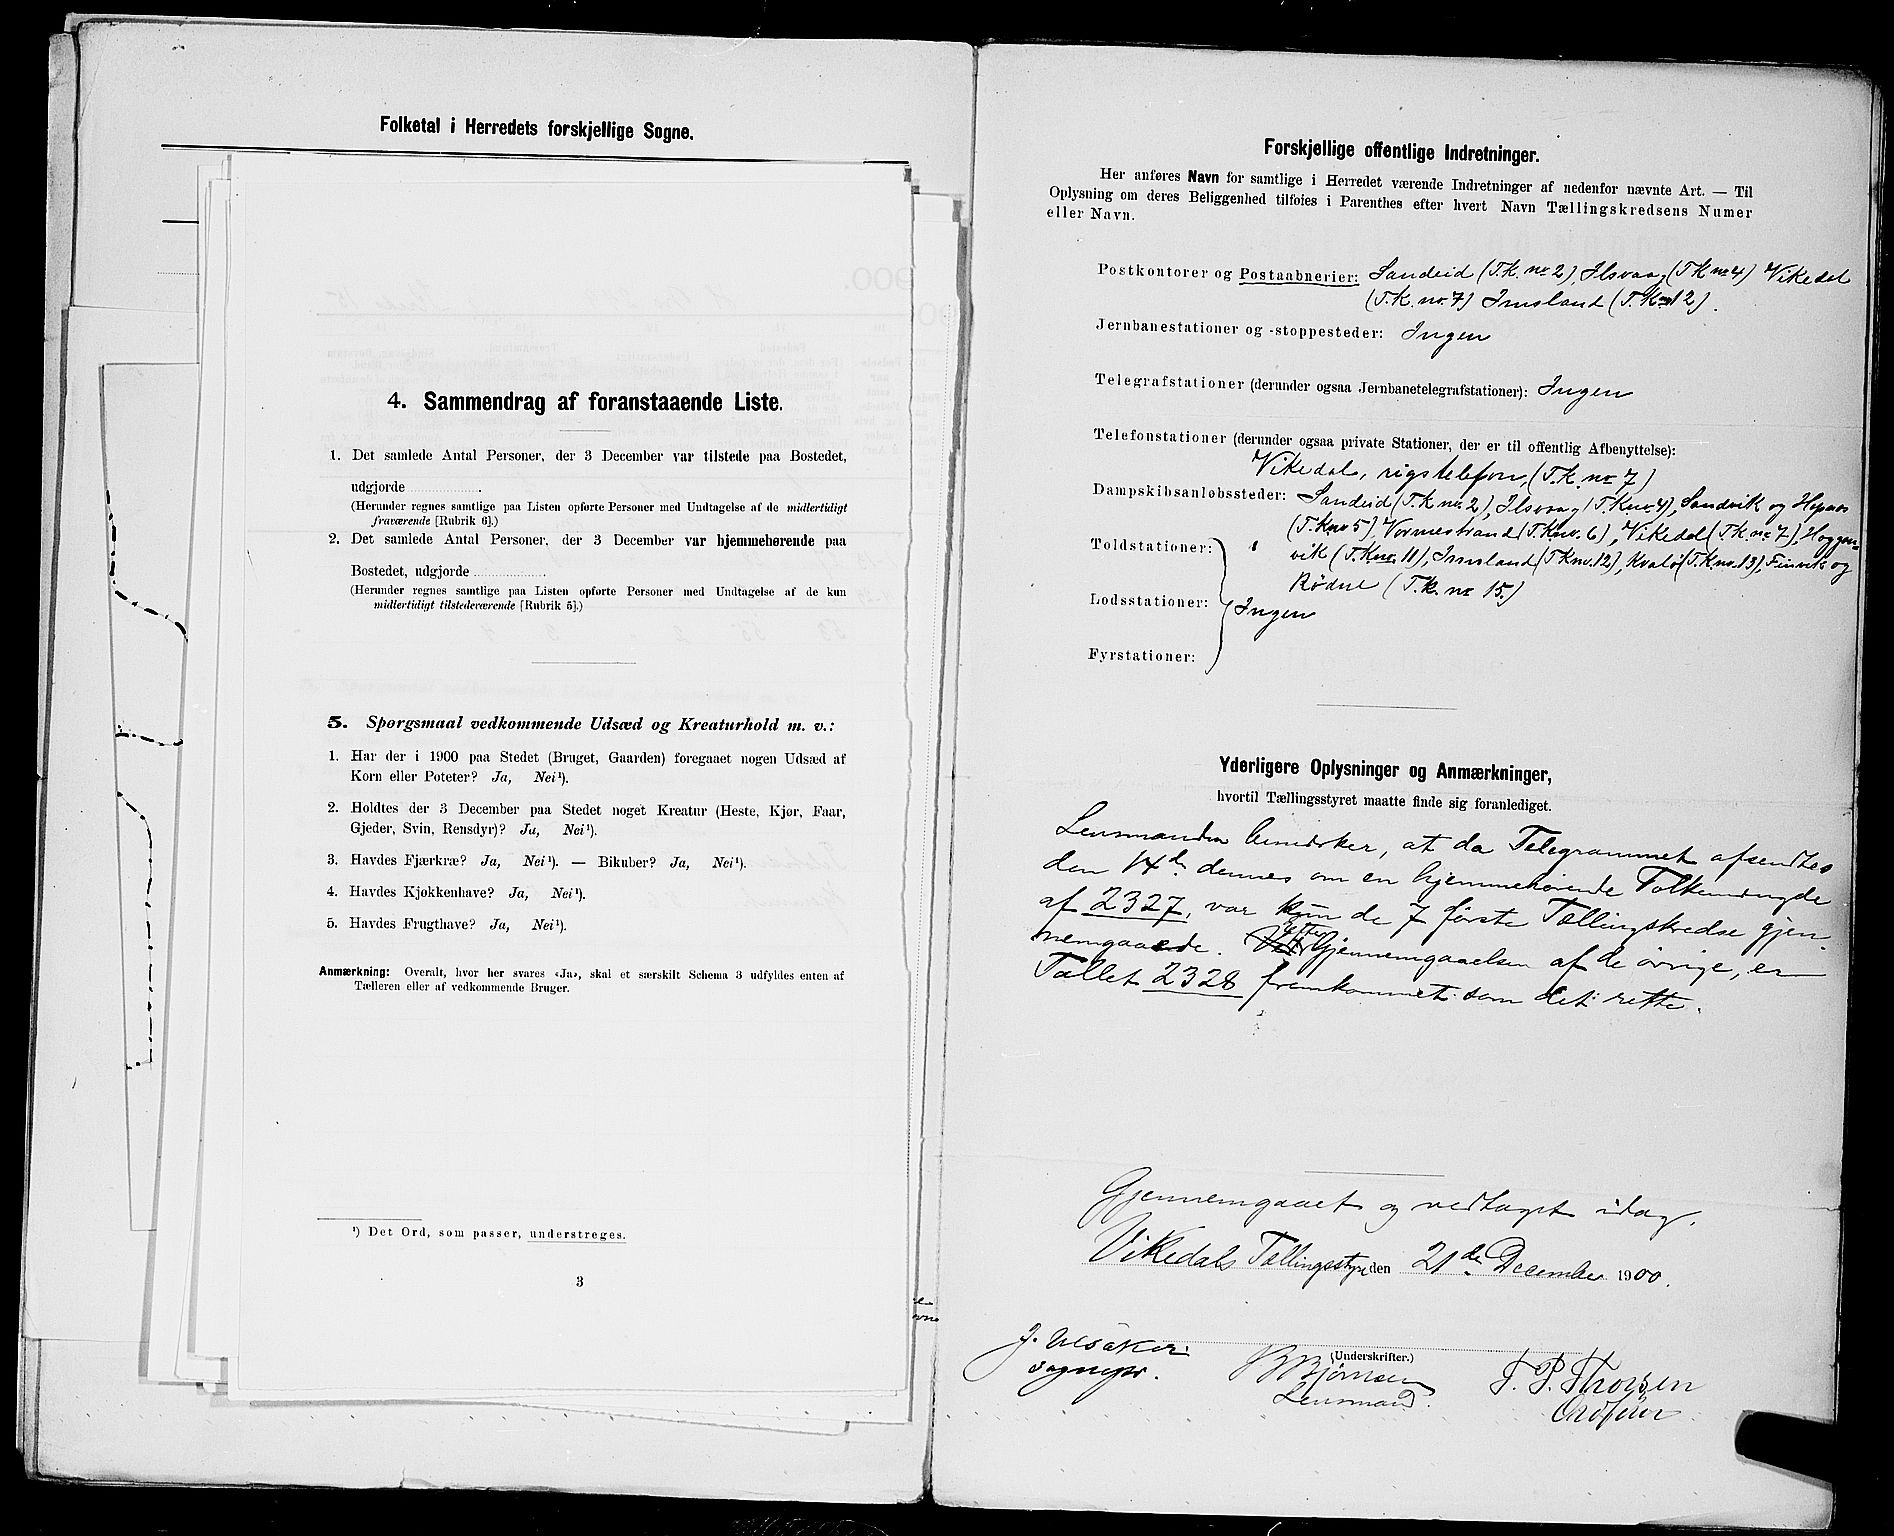 Folketal i Herredets forskjellige Sogne.
4. Sammendrag af foranstaaende Liste.
1. Det samlede Antal Personer, der 3 December var tilstede paa Bostedet,
udgjorde
(Herunder regnes samtlige paa Listen opførte Personer med Undtagelse af de midlertidigt
fraværende [Rubrik 6].)
2. Det samlede Antal Personer, der 3 December var hjemmehørende paa
Bostedet, udgjorde
(Herunder regnes samtlige paa Listen opførte Personer med Undtagelse af de kun
midlertidigt tilstedeværende [Rubrik 5].)
5. Spørgsmaal vedkommende Udsæd og Kreaturhold m. v.:
1. Har der i 1900 paa Stedet (Bruget, Gaarden) foregaaet nogen Udsæd af
Korn eller Poteter? Ja, Nei¹).
2. Holdtes der 3 December paa Stedet noget Kreatur (Heste, Kjør, Faar,
Gjeder, Svin, Rensdyr)? Ja, Nei¹).
3. Havdes Fjærkræ? Ja, Nei¹). — Bikuber? Ja, Nei¹).
4. Havdes Kjøkkenhave? Ja, Nei¹).
5. Havdes Frugthave? Ja, Nei¹).
Anmærkning: Overalt, hvor her svares «Ja», skal et særskilt Schema 3 udfyldes enten af
Tælleren eller af vedkommende Bruger.
¹) Det Ord, som passer, understreges.
3
Forskjellige offentlige Indretninger.
Her anføres Navn for samtlige i Herredet værende Indretninger af nedenfor nævnte Art. — Til
Oplysning om deres Beliggenhed tilføies i Parenthes efter hvert Navn Tællingskredsens Numer
eller Navn.
Postkontorer og Postaabnerier: Sandeid (T.K. no. 2), Ilsvaag (T K no 4) Vikedal
(T.K. no. 7) Imsland (T.K no 12).
Jernbanestationer og -stoppesteder: Ingen
Telegrafstationer (derunder ogsaa Jernbanetelegrafstationer): Ingen
Telefonstationer (derunder ogsaa private Stationer, der er til offentlig Afbenyttelse):
Vikedal, rigstelefon, (T.K. no 7)
Dampskibsanløbssteder: Sandeid (T.K no. 2), Ilsvaag (T.K no. 4), Sandvik og
(T.K no 5) Vormestrand (T.K no. 6), Vikedal (T.K. no 7), Hoggan-
Toldstationer: vik (T.K no. 11), Imsland (T K no. 12), Kvalø (T.K. no. 13), Finvik og
Rødne (T.K. no 15.)
Lodsstationer: Ingen
Fyrstationer:
Yderligere Oplysninger og Anmærkninger,
hvortil Tællingsstyret maatte finde sig foranlediget.
Lensmanden bemærker, at da Telegrammet afsendtes
den 14de dennes om en hjemmehørende Folkemængde
af 2327, var kun de 7 første Tællingskredse gjen-
nemgaaede. Efter Gjennemgaaelsen af de øvrige, er
Tallet 2328 fremkommet som det rette.
Gjennemgaaet og vedtaget idag.
Vikedals Tællingsstyre den 21de December 1900.
(Underskrifter.)
J. Ulsaker B Bjørnsen T. P. Thorsen
sognepr. Lensmand. Ordfører